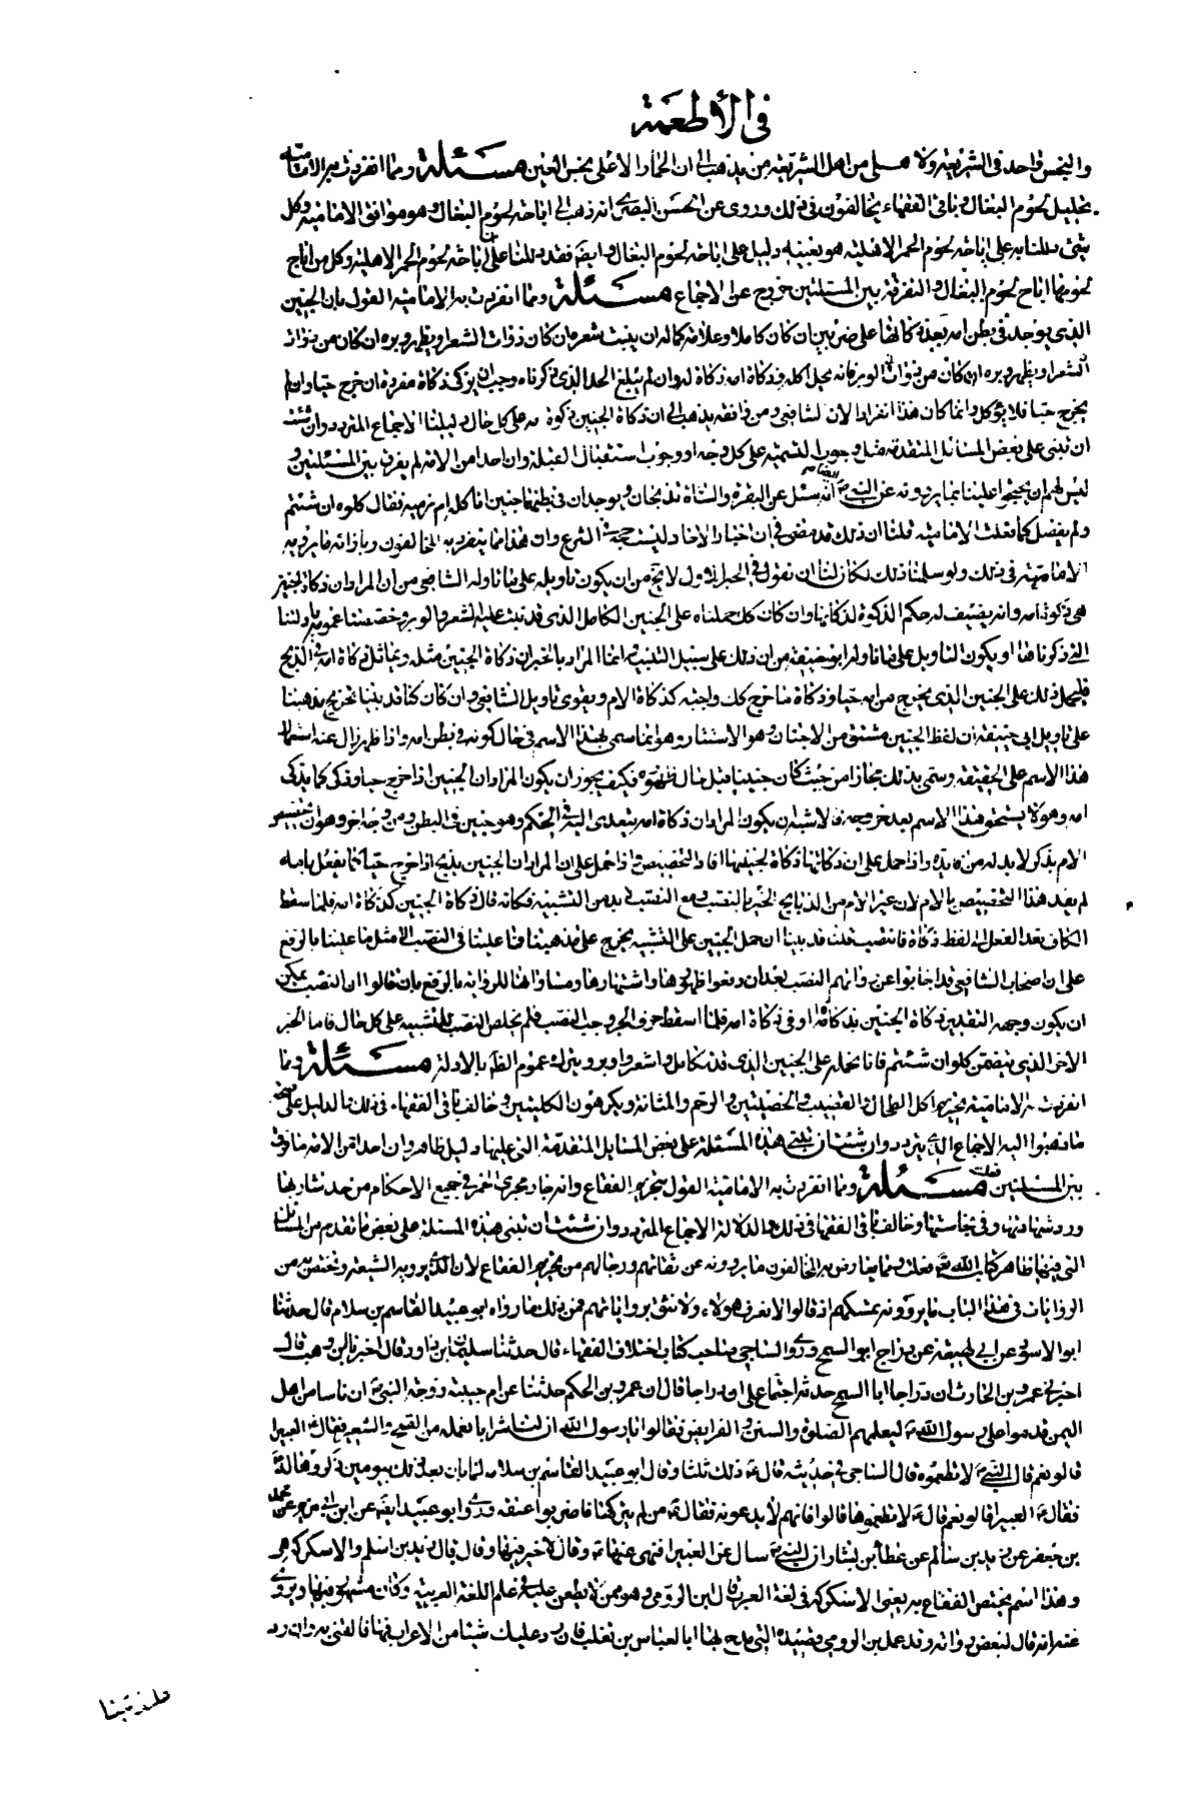 في الأطعمة
والنجس واحد في الشريعة ولا من اهل الشريعة من يذهب الى ان الحمار الاهلى نجس العين مسئلة ومما انفردت به الامامية
تحليل لحوم البغال وباقى الفقهاء يخالفون في ذلك وروى عن الحسن البصرى انه ذهب الى اباحة لحوم البغال وهو موافق الامامية وكل
شئ دللنا به على اباحة لحوم الحمر الاهلية هو بعينه دليل على اباحة لحوم البغال وايضا فقد دللنا على ان اباحة لحوم الحمر الاهلية وكل من اباح
لحومها اباح لحوم البغال والتفرقة بين المسئلتين خروج عن الاجماع مسئلة ومما انفردت به الامامية القول بان الجنين
الذى يوجد في بطن امه بعد ذكاتها على ضربين ان كان كاملا وعلامة كماله ان ينبت شعره ان كان ذوات الشعر او يظهر وبره ان كان من ذوات
الوبر فانه يحل اكله وذكاة امه ذكاة له وان لم يبلغ الحد الذى ذكرناه وجب ان يزكى ذكاة مفردة ان خرج حيا وان لم
يخرج حيا فلا يؤكل وانما كان هذا انفرادا لان الشافعى ومن وافقه يذهب الى ان ذكاة الجنين ذكوة امه على كل حال دليلنا الاجماع المتردد وان شئت
ان تبنى على بعض المسائل المتقدمة مثل وجوب التسمية على كل وجه او وجوب استقبال القبلة وان احدا من الامة لم يفرق بين المسئلتين و
ليس لهم ان يحتجوا علينا بما يروونه عن النبى انه سئل عن البقرة والشاة تذبحان ويوجدان في بطنها جنين اناكله ام نرميه فقال كلوه ان شئتم
ولم يفصل كما فعلت الامامية قلنا ان ذلك قد مضى في ان اخبار الاحاد ليست بحجة في الشرع وان هذا مما ينفرد به المخالفون وبازائه ما يرويه
الامامية في ذلك ولو سلمنا ذلك لكان لنا ان نقول في الخبر الاول لا يخ من ان يكون تاويله على ما تاوله الشافعى من ان المراد ان ذكاة الجنين
هى ذكوة امه وانه يضيف له حكم الذكوة لذكاتها وان كان كك حملناه على الجنين الكامل الذى قد نبت عليه الشعر والوبر وخصصنا عمومه بادلتنا
التى ذكرناها او يكون التاويل على ما تاوله ابو حنيفة من ان ذلك على سبيل التشبيه انما المراد بالخبر ان ذكاة الجنين مثله ويماثل ذكاة امه في الذبح
فليحمل ذلك على الجنين الذى يخرج من امه حيا وذكاة ما خرج كك واجبه كذكاة الام ويقوى تاويل الشافعى وان كان كنا قد بينا تخريج مذهبنا
على تاويل ابى حنيفة ان لفظ الجنين مشتق من الاجتنان وهو الاستتار وهو انما سمى بهذا الاسم في حال كونه في بطن امه واذا ظهر زال عنه استعمال
هذا الاسم على الحقيقة وسمى بذلك مجازا من حيث كان جنينا قبل حال ظهوره فكيف يجوز ان يكون المراد ان الجنين اذا خرج حيا وذكى كما يذكى
امه وهو لا يستحق هذا الاسم بعد خروجه فالاشبه ان يكون المراد ان ذكاة امه يتعدى اليه في الحكم وهو جنين في البطن ومن وجه اخر وهو ان تخصيص
الام بذكر لابد له من فائدة واذا حمل على ان ذكاتها ذكاة لجنينها افاد التخصيص واذا حمل على ان المراد ان الجنين يذبح اذا خرج حيا كما يفعل بامه
لم يفد هذا التخصيص بالام لان غير الام من الذبايح الخبر بالنصب ومع النصب لا بد من التشبيه فكانه قال ذكاة الجنين كذكاة امه فلما سقط
الكاف تعدا الفعل الى لفظ ذكاة فانتصب قلت قد بينا ان حمل الجنين على التشبيه يخرج على مذهبنا فما علينا في النصب الا مثل ما علينا بالرفع
على ان اصحاب الشافعى قد اجابوا عن رواتهم النصب بعد ان دفعوا ظهورها واشتهارها ومساواتها للرواية بالرفع بان قالوا ان النصب يمكن
ان يكون وجهه التقدير ذكاة الجنين بذكاة امه او في ذكاة امه فلما اسقط حرف الجر وجب النصب فلم يخلص النصب للتشبيه على كل حال فاما الخبر
الاخر الذى يتضمن كلوان شئتم فانا نحمله على الجنين الذى قد تكامل واشعر واوبر ونترك عموم الظاهر بالادلة مسئلة ومما
انفردت به الامامية تحريم اكل الطحال والقضيب والخصيتين والرحم والمثانة ويكرهون الكليتين وخالف باقى الفقهاء في ذلك والدليل على صحة
ما ذهبوا اليه الاجماع الذى يتردد وان شئت ان تبنى هذه المسئلة على بعض المسايل المتقدمة التى عليها دليل ظاهر وان احدا من الامة ما فرق
بين المسئلتين فعلت مسئلة ومما انفردت به الامامية القول بتحريم الفقاع وانه جار مجرى الخمر في جميع الاحكام من حد شاربها
ورد شهادته وفي نجاستها وخالف باقى الفقهاء في ذلك والدلالة الاجماع المتردد وان شئت ان تبنى هذه المسئلة على بعض ما تقدم من المسائل
التى فيها ظاهر كتاب الله تع فعلت ومما يعارض به المخالفون ما يروونه عن ثقاتهم ورجالهم من تحريم الفقاع لان الذى يرويه الشيعة وتختص به من
الروايات في هذا الباب ما يروونه يمسككم اذ قالوا لا نعرف هؤلاء ولا نثق برواياتهم فمن ذلك ما رواه ابو عبيد القاسم بن سلام قال حدثنا
ابو الاسود عن ابى لهيعة عن دراج ابو السمح وروى الساجى صاحب كتاب اختلاف الفقهاء قال حدثنا سليمان بن داود قال اخبرنا ابن وهب قال
اخبرنى عمرو بن الحارث ان دراجا ابا السمح حدثه اجتماعا على ان دراجا قال ان عمرو بن الحكم حدثنا عن ام حبيبة زوجة النبى ان ناسا من اهل
اليمن قدموا على رسول الله ليعلمهم الصلوة والسنن والفرايض فقالوا يا رسول الله ان لنا شرابا نعمله من القمح والشعير فقال الغبيرا
قالوا نعم قال النبى لا تطعموه قال الساجى في حديثه قال ذلك ثلثا وقال ابو عبيد القاسم بن سلام لما كان بعد ذلك بيومين ذكروها له
فقال الغبيرا قالوا نعم قال لا تطعموها قالوا فانهم لا يدعونه فقال من لم يتركها فاضربوا عنقه وروى ابو عبيد ايضا عن ابن ابى مريم عن محمد
بن جعفر عن زيد بن اسلم عن عطا بن يسار ان النبى سال عن الغبيرا فنهى عنها وقال لا خير فيها وقال قال زيد بن اسلم والاسكركة هى
وهذا اسم يختص الفقاع به يعنى الاسكركة في لغة العرب قال ابن الرومى وهو ممن لا يطعن عليه في علم اللغة العربية وكان مشهورا فيها ويروى
عنه انه قال لبعض رواته وقد عمل ابن الرومى قصيدة التى مدح بها ابا العباس بن ثعلب فان رد عليك شيئا من الاعراب فيها فالقنى به وان رد